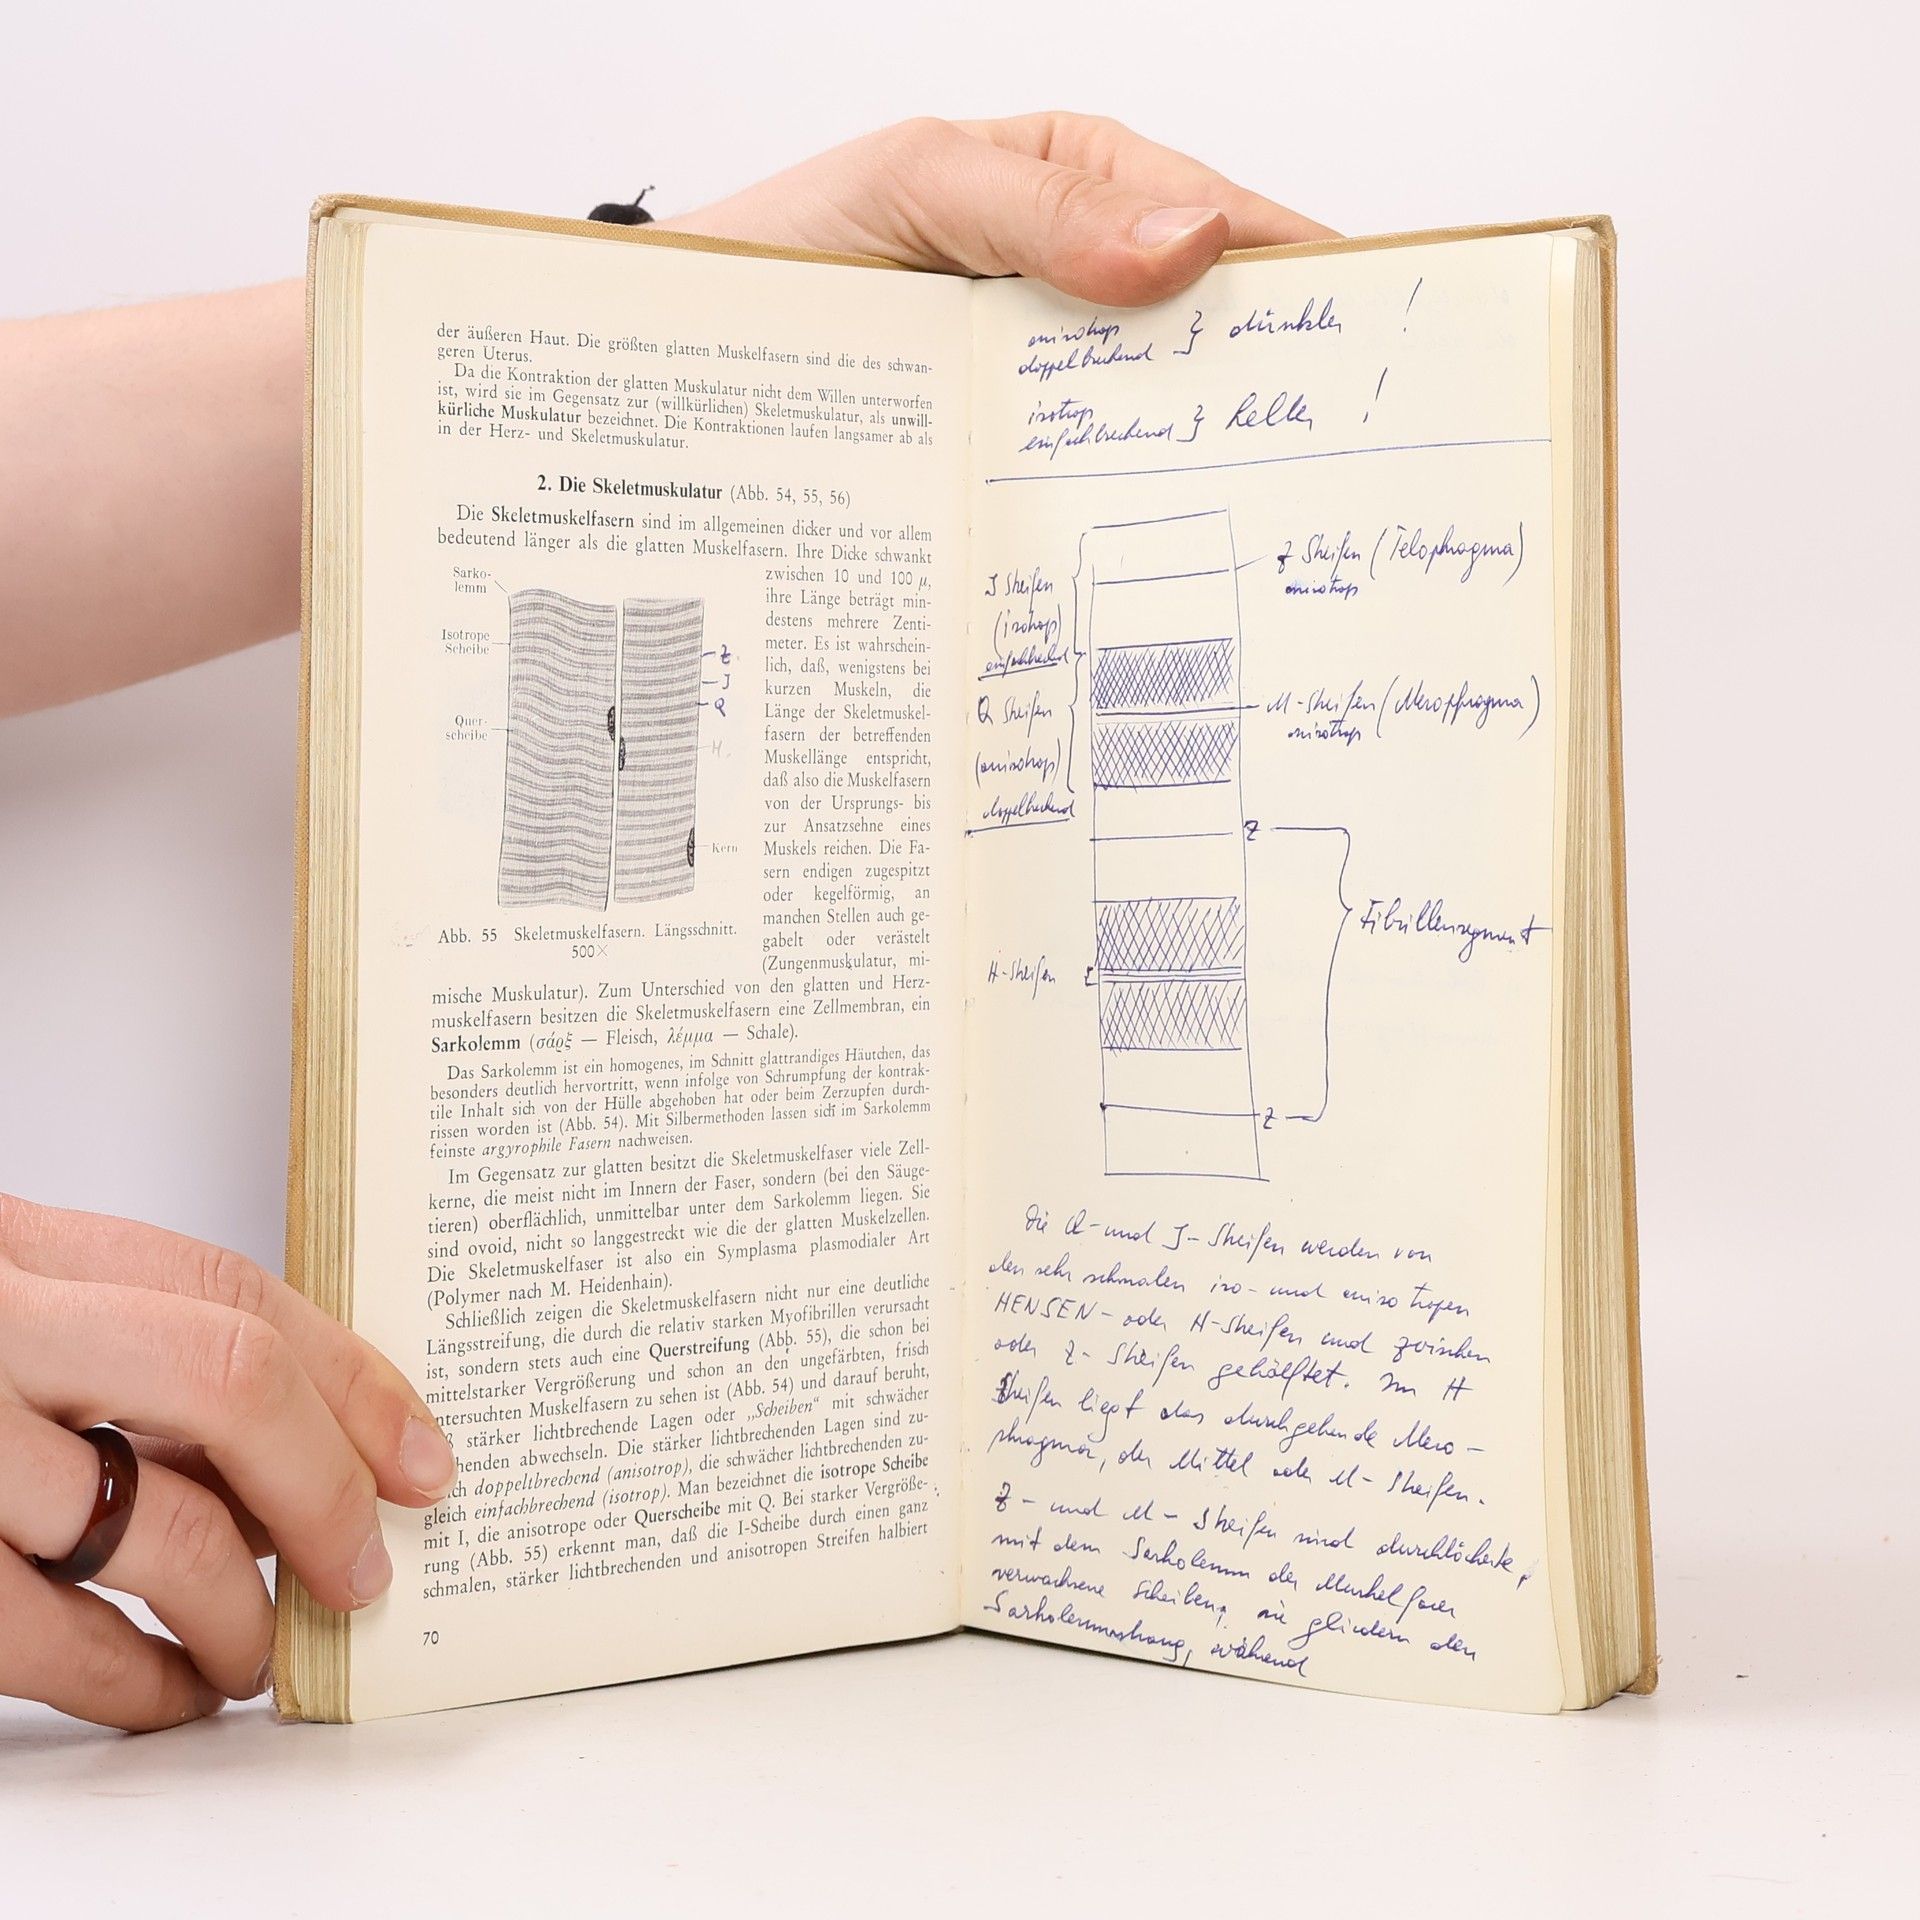 der äußeren Haut. Die größten glatten Muskelfasern sind die des schwan-
geren Uterus.
Da die Kontraktion der glatten Muskulatur nicht dem Willen unterworfen
ist, wird sie im Gegensatz zur (willkürlichen) Skeletmuskulatur, als unwill-
kürliche Muskulatur bezeichnet. Die Kontraktionen laufen langsamer ab als
in der Herz- und Skeletmuskulatur.
2. Die Skeletmuskulatur (Abb. 54, 55, 56)
Die Skeletmuskelfasern sind im allgemeinen dicker und vor allem
bedeutend länger als die glatten Muskelfasern. Ihre Dicke schwankt
zwischen 10 und 100 μ,
ihre Länge beträgt min-
destens mehrere Zenti-
meter. Es ist wahrschein-
lich, daß, wenigstens bei
kurzen Muskeln, die
Länge der Skeletmuskel-
fasern der betreffenden
Muskellänge entspricht,
daß also die Muskelfasern
von der Ursprungs- bis
zur Ansatzsehne eines
Muskels reichen. Die Fa-
sern endigen zugespitzt
oder kegelförmig, an
manchen Stellen auch ge-
gabelt oder verästelt
(Zungenmuskulatur, mi-
Sarko-
lemm
Isotrope
Scheibe
Quer-
scheibe
Z
J
Q
H.
Kern
Abb. 55 Skeletmuskelfasern. Längsschnitt.
500×
mische Muskulatur). Zum Unterschied von den glatten und Herz-
muskelfasern besitzen die Skeletmuskelfasern eine Zellmembran, ein
Sarkolemm (σάρξ — Fleisch, λέμμα — Schale).
Das Sarkolemm ist ein homogenes, im Schnitt glattrandiges Häutchen, das
besonders deutlich hervortritt, wenn infolge von Schrumpfung der kontrak-
tile Inhalt sich von der Hülle abgehoben hat oder beim Zerzupfen durch-
rissen worden ist (Abb. 54). Mit Silbermethoden lassen sich im Sarkolemm
feinste argyrophile Fasern nachweisen.
Im Gegensatz zur glatten besitzt die Skeletmuskelfaser viele Zell-
kerne, die meist nicht im Innern der Faser, sondern (bei den Säuge-
tieren) oberflächlich, unmittelbar unter dem Sarkolemm liegen. Sie
sind ovoid, nicht so langgestreckt wie die der glatten Muskelzellen.
Die Skeletmuskelfaser ist also ein Symplasma plasmodialer Art
(Polymer nach M. Heidenhain).
Schließlich zeigen die Skeletmuskelfasern nicht nur eine deutliche
Längsstreifung, die durch die relativ starken Myofibrillen verursacht
ist, sondern stets auch eine Querstreifung (Abb. 55), die schon bei
mittelstarker Vergrößerung und schon an den ungefärbten, frisch
untersuchten Muskelfasern zu sehen ist (Abb. 54) und darauf beruht,
stärker lichtbrechende Lagen oder „Scheiben“ mit schwächer
henden abwechseln. Die stärker lichtbrechenden Lagen sind zu-
ich doppeltbrechend (anisotrop), die schwächer lichtbrechenden zu-
gleich einfachbrechend (isotrop). Man bezeichnet die isotrope Scheibe
mit I, die anisotrope oder Querscheibe mit Q. Bei starker Vergröße-
rung (Abb. 55) erkennt man, daß die I-Scheibe durch einen ganz
schmalen, stärker lichtbrechenden und anisotropen Streifen halbiert
70
anisotrop
doppelbrechend } dünkler !
isotrop
einfachbrechend } heller !
Z Streifen (Telophragma)
anisotrop
J Streifen
(isotrop)
einfachbrechend
M-Streifen (Mesophragma)
anisotrop
Q Streifen
(anisotrop)
doppelbrechend
Z
Fibrillensegment
H-Streifen
Z
Die Q- und J-Streifen werden von
den sehr schmalen iso- und anisotropen
HENSEN- oder H-Streifen und zwischen
oder Z-Streifen gehälftet. Im H
Streifen liegt das durchgehende Meso-
phragma, der Mittel oder M-Streifen.
Z- und M-Streifen sind durchlöcherte,
mit dem Sarkolemm der Muskelfaser
verwachsene Scheiben, sie gliedern den
während